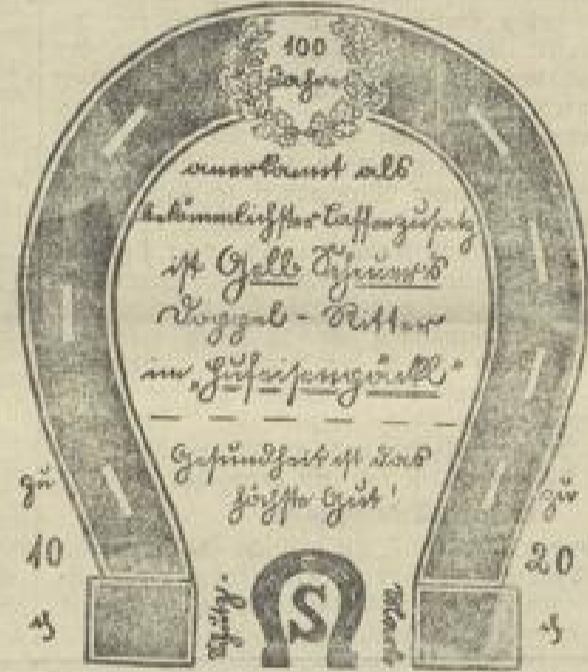 100
Jahre
anerkannt als
bekömmlichster Caffeezusatz
ist Gelb Scheuer's
Doppel-Ritter
im „Hufeisenpäckl"
Gesundheit ist das
höchste Gut!
zu
10
₰
zu
20
₰
Schutz-
S
Marke